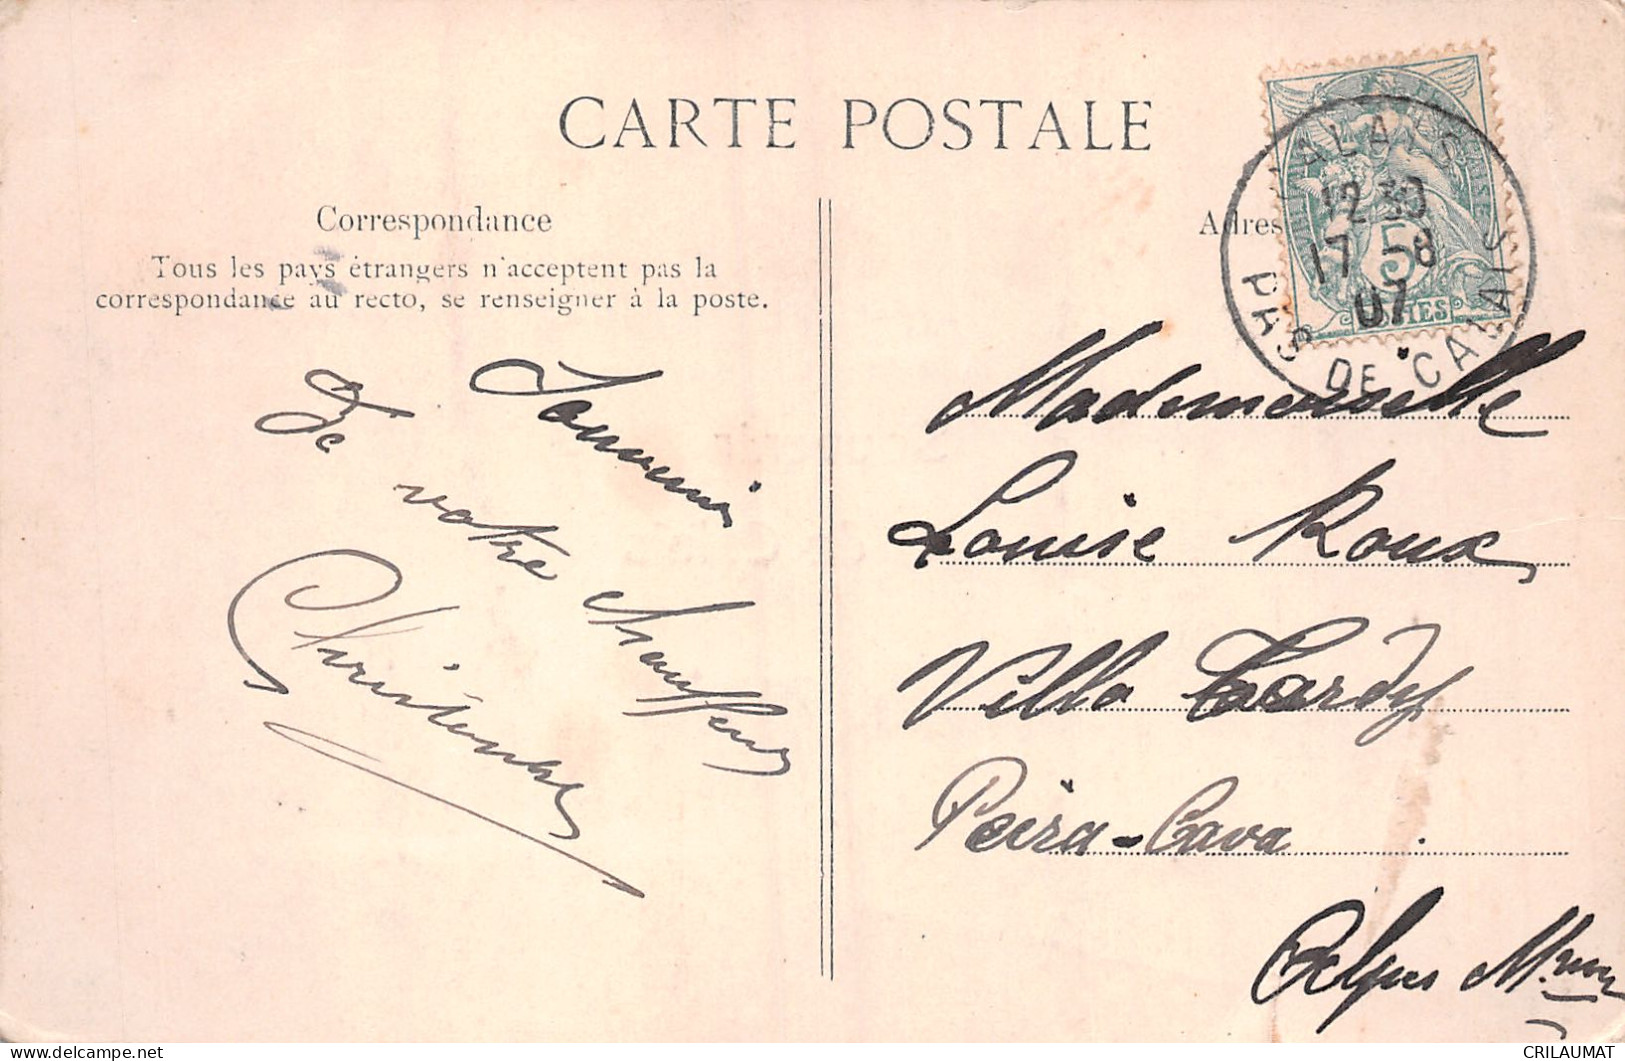 CARTE POSTALE
Correspondance
Tous les pays étrangers n'acceptent pas la
correspondance au recto, se renseigner à la poste.
Souvenir
De votre
Chauffeur
Adres
CALAIS
12 30
17 -8
07
PAS DE CALAIS
5
Mademoiselle
Louise Roux
Villa Tardy
Peira-Cava
Alpes Mmes
CRILAUMAT